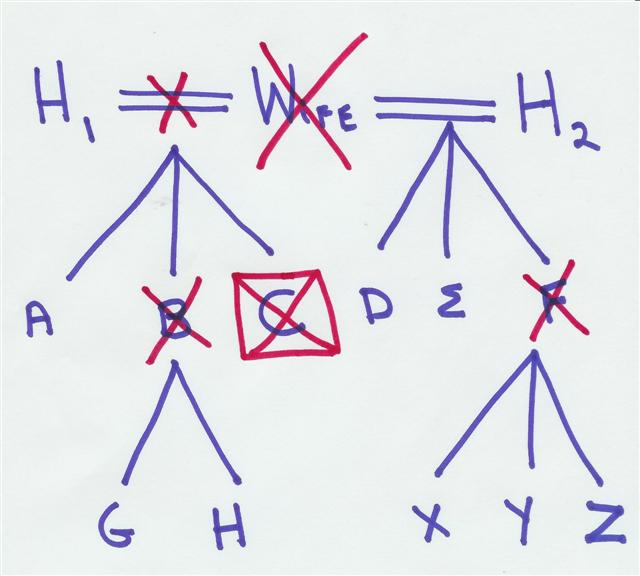 H1 WIFE H2
A B C D E F
G H X Y Z